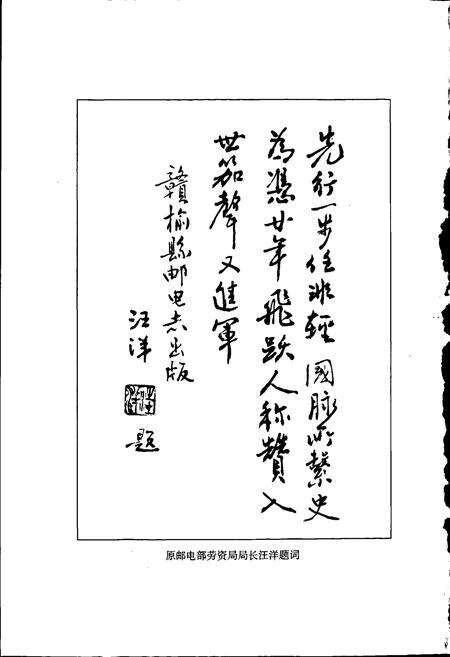 先行一步任非輕國脉所繫史
為憑廿年飛跃人称贊入
世笳聲又進軍
贛榆縣邮电志出版
汪洋
題
原邮电部劳资局局长汪洋题词